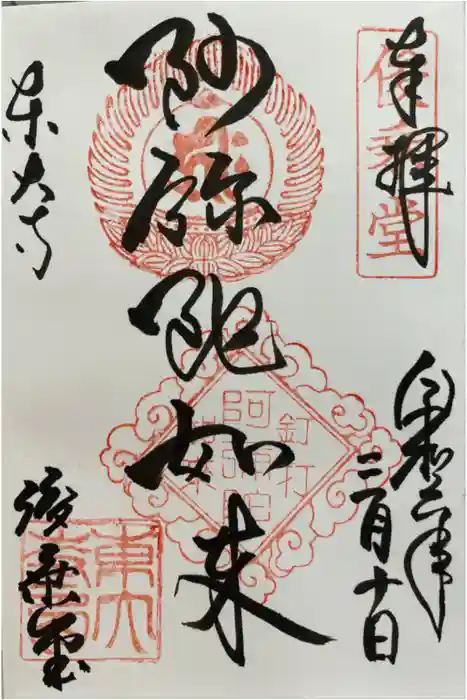 奉拝
俊乗堂
令和二年
三月十日
阿弥陀如来
釘打
阿弥陀
如来
東大寺
俊乗堂
東大